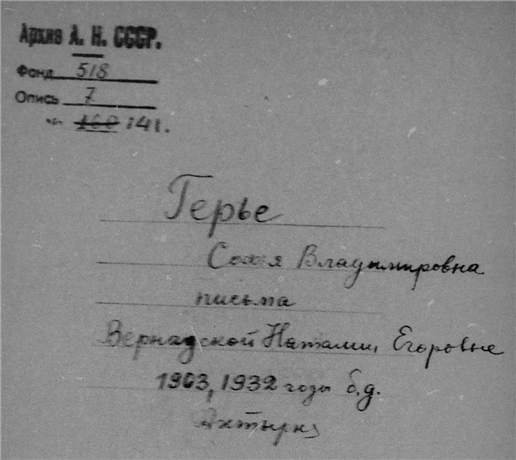 Архив А. Н. СССР.
Фонд 518
Опись 7
№ 160 141.
Герье
Софья Владимировна
письма
Вернадской Наталии Егоровне
1903, 1932 годы б.д.
Ахтырка